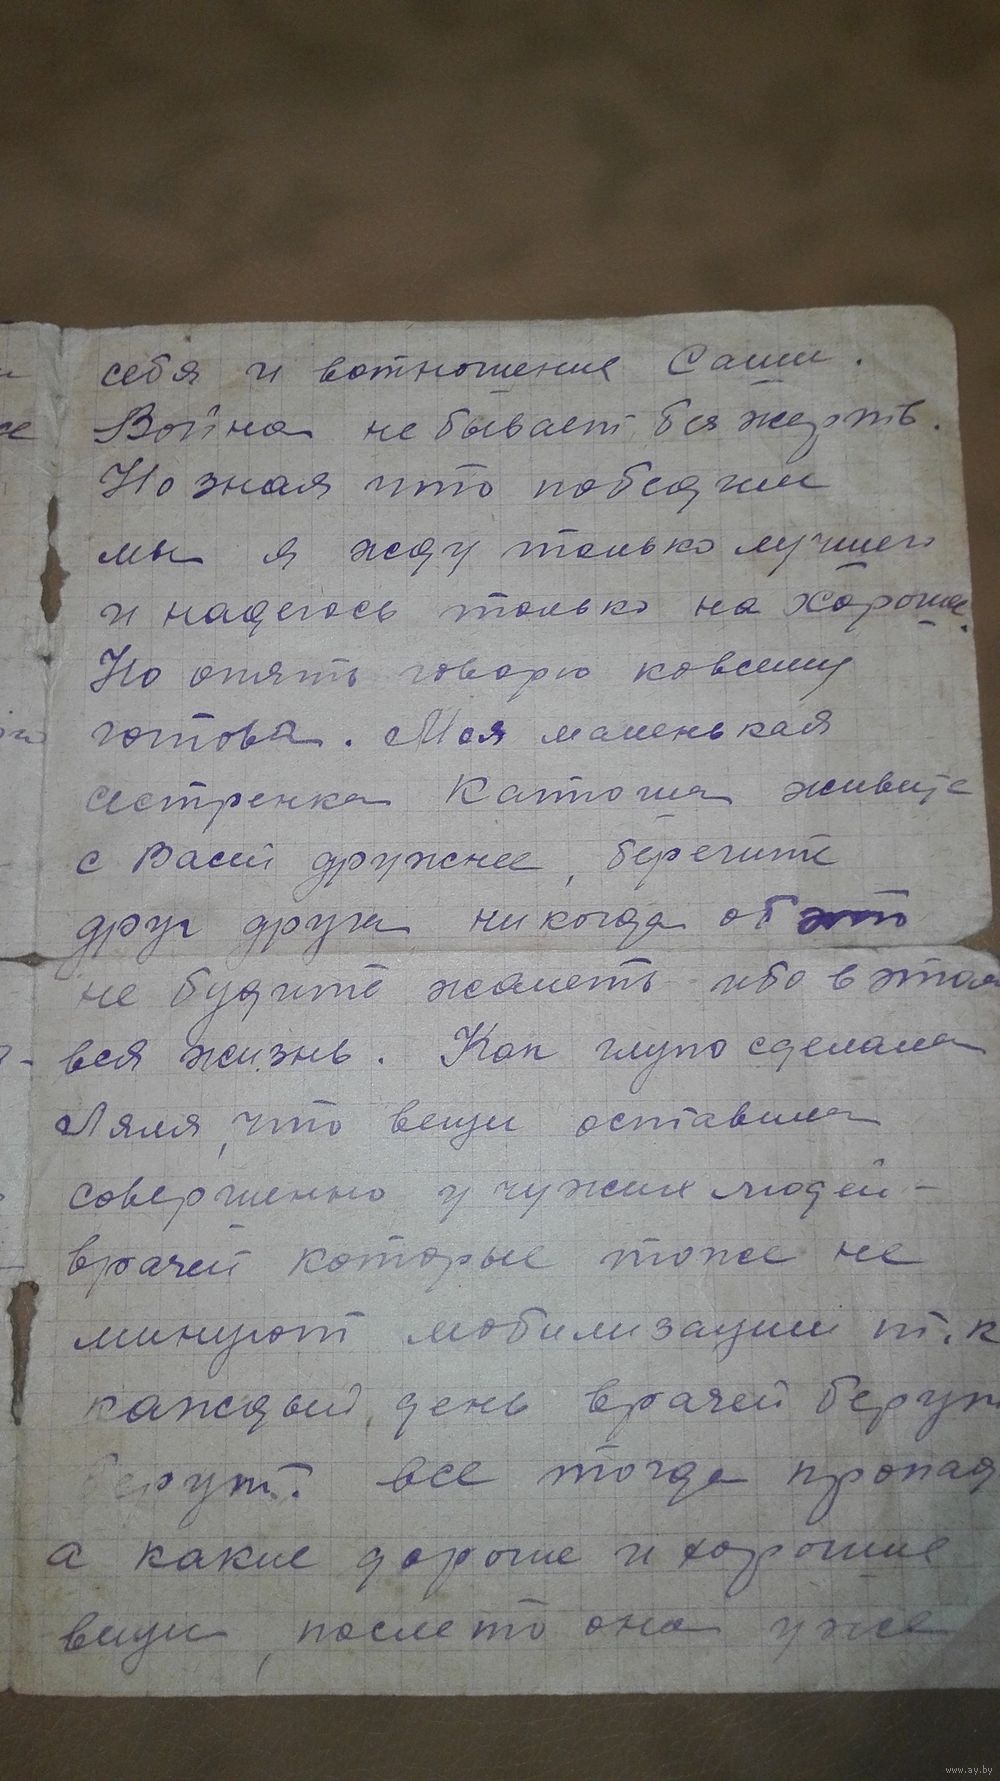 себя и вотношение Саши.
Война не бывает без жертв.
Но зная что победим
мы я жду только лучшего
и надеюсь только на хорошее.
Но опять говорю ковсему
готова. Моя маленькая
сестренка Катюша живите
с Васей дружнее, берегите
друг друга никогда об этом
не будите жалеть ибо в этом
вся жизнь. Как глупо сделала
Ляля, что вещи оставила
совершенно у чужих людей-
врачей которые тоже не
минуют мобилизации т.к
каждый день врачей берут
берут. все тогда пропад
а какие дорогие и хорошие
вещи, после то она уже
www.ay.by